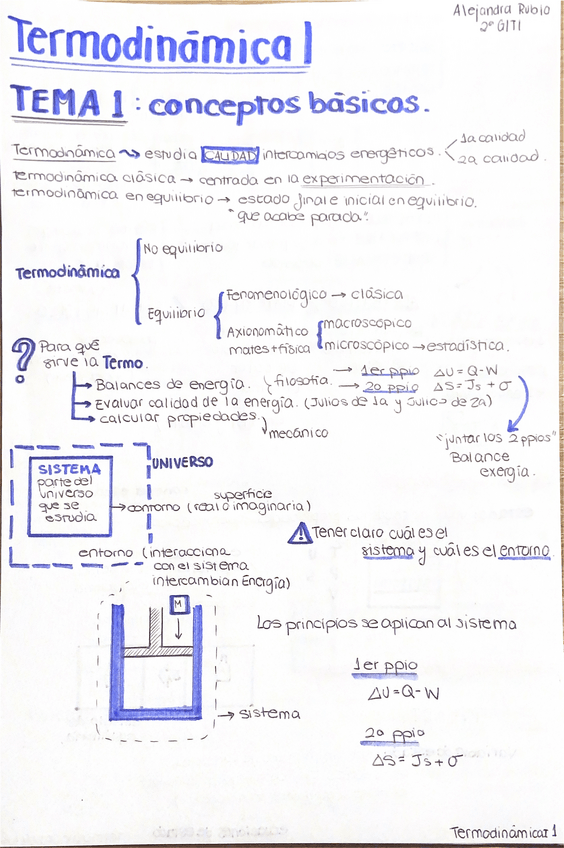 Alejandra Rubio
2º GITI
Termodinámica I
TEMA 1: conceptos básicos.
Termodinámica → estudia CALIDAD intercambios energéticos. < 1a calidad
2a calidad.
termodinámica clásica → centrada en la experimentación.
termodinámica en equilibrio → estado final e inicial en equilibrio.
"que acabe parada".
No equilibrio
Termodinámica
Equilibrio
Fenomenológico → clásica
Axionomático
mates + física
macroscópico
microscópico → estadística.
? Para qué
sirve la Termo.
→ Balances de energía. filosofía. → 1er ppio ΔU = Q - W
→ 2o ppio ΔS = Js + σ
→ Evaluar calidad de la energía. (Julios de 1a y Julios de 2a)
→ calcular propiedades.
mecánico
"juntar los 2 ppios"
Balance
exergía.
SISTEMA
parte del
universo
que se
estudia
UNIVERSO
superficie
→ contorno (real o imaginaria)
entorno (interacciona
con el sistema
intercambian Energía)
⚠ Tener claro cuál es el
sistema y cuál es el entorno.
M
→ sistema
Los principios se aplican al sistema
1er ppio
ΔU = Q - W
2o ppio
ΔS = Js + σ
Termodinámica 1